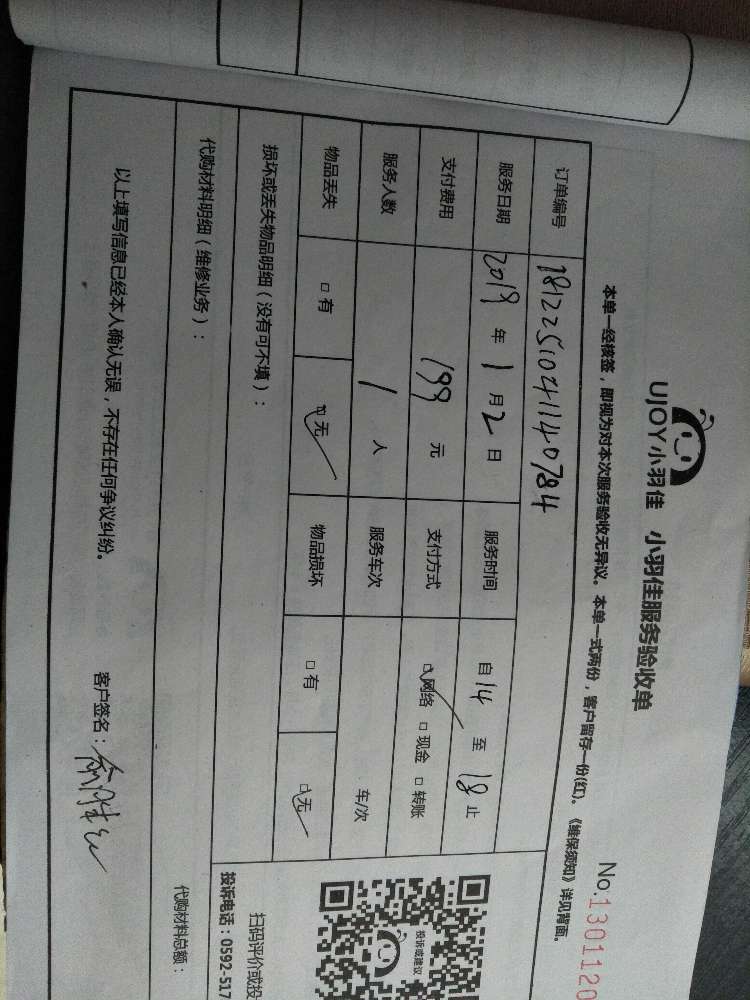 UJOY小羽佳 小羽佳服务验收单
No.1301120
本单一经核签，即视为对本次服务验收无异议。本单一式两份，客户留存一份(红)。《维保须知》详见背面。
订单编号 18122510411140784
服务日期 2019 年 1 月 2 日 服务时间 自 14 至 18 止
支付费用 199 元 支付方式 网络 □ 现金 □ 转账
服务人数 1 人 服务车次 车/次
物品丢失 □ 有 □ 无 ✓ 物品损坏 □ 有 □ 无 ✓
损坏或丢失物品明细（没有可不填）：
投诉或建议
扫码评价或投
投诉电话：0592-517
代购材料明细（维修业务）：
代购材料总额：
以上填写信息已经本人确认无误，不存在任何争议纠纷。
客户签名：